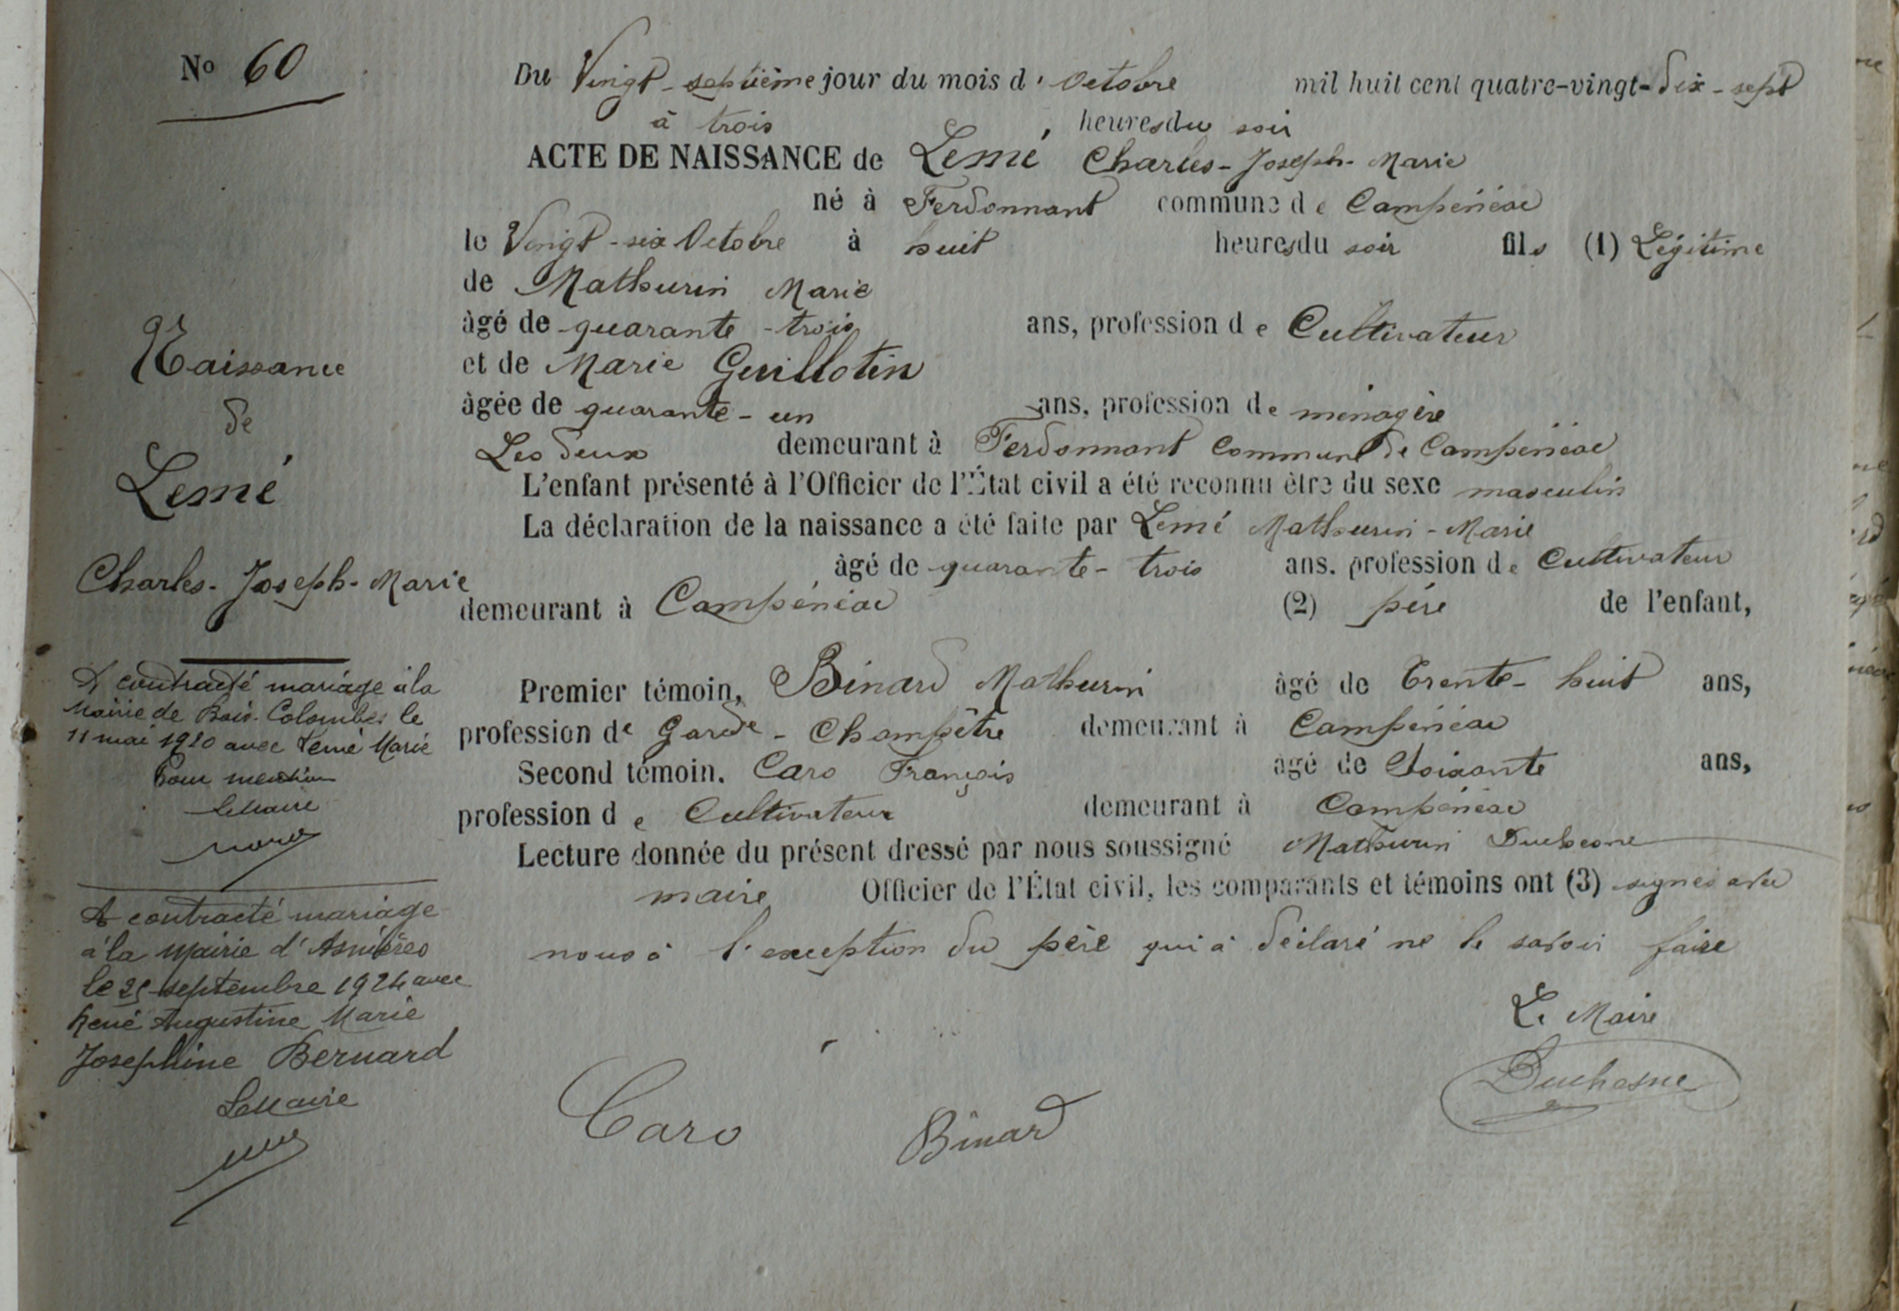 No 60
Naissance
de
Lemé
Charles-Joseph-Marie
A contracté mariage à la
Mairie de Bois-Colombes le
11 mai 1920 avec Lemé Marie
Pour mention
Le Maire
A contracté mariage
à la Mairie d'Asnières
le 25 septembre 1924 avec
René Augustine Marie
Josephine Bernard
Le Maire
Du Vingt-septième jour du mois d'Octobre mil huit cent quatre-vingt-dix-sept
à trois heures du soir
ACTE DE NAISSANCE de Lemé, Charles-Joseph-Marie
né à Ferdonnant commune de Campénéac
le Vingt-six Octobre à huit heures du soir fils (1) Légitime
de Mathurin Marie
âgé de quarante-trois ans, profession de Cultivateur
et de Marie Guillotin
âgée de quarante-un ans, profession de ménagère
Les deux demeurant à Ferdonnant Commune de Campénéac
L'enfant présenté à l'Officier de l'État civil a été reconnu être du sexe masculin
La déclaration de la naissance a été faite par Lemé Mathurin-Marie
âgé de quarante-trois ans, profession de Cultivateur
demeurant à Campénéac (2) père de l'enfant,
Premier témoin, Binard Mathurin âgé de Trente-huit ans,
profession de Garde-Champêtre demeurant à Campénéac
Second témoin, Caro François âgé de Soixante ans,
profession de Cultivateur demeurant à Campénéac
Lecture donnée du présent dressé par nous soussigné Mathurin Duchesne
maire Officier de l'État civil, les comparants et témoins ont (3) signés avec
nous à l'exception du père qui à déclaré ne le savoir faire
Le Maire
Duchesne
Caro Binard